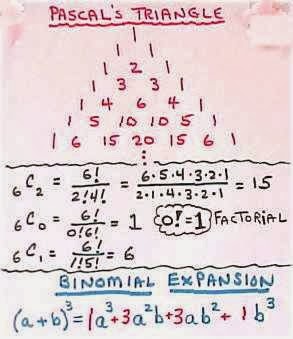 PASCAL'S TRIANGLE
1
1 1
1 2 1
1 3 3 1
1 4 6 4 1
1 5 10 10 5 1
1 6 15 20 15 6 1
⋮
₆C₂ = 6!/2!4! = 6·5·4·3·2·1/2·1·4·3·2·1 = 15
₆C₀ = 6!/0!6! = 1 0!=1 FACTORIAL
₆C₁ = 6!/1!5! = 6
BINOMIAL EXPANSION
(a+b)³=1a³+3a²b+3ab²+1b³